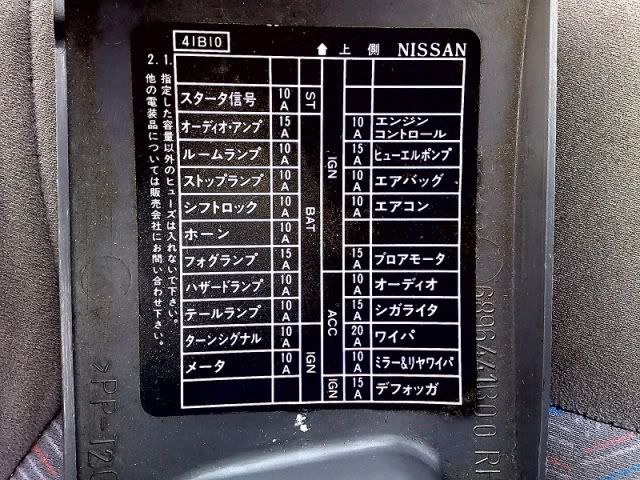 41B10
上側 NISSAN
1. 指定した容量以外のヒューズは入れないで下さい。
2. 他の電装品については販売会社にお問い合わせ下さい。
スタータ信号 10A ST
オーディオ・アンプ 15A BAT
ルームランプ 10A
ストップランプ 10A
シフトロック 10A
ホーン 10A
フォグランプ 15A
ハザードランプ 10A
テールランプ 10A
ターンシグナル 10A IGN
メータ 10A
IGN 10A エンジン
コントロール
15A ヒューエルポンプ
10A エアバッグ
10A エアコン
15A ブロアモータ
ACC 10A オーディオ
15A シガライタ
20A ワイパ
10A ミラー&リヤワイパ
IGN 15A デフォッガ
>PP-T20
6896441B00 RH